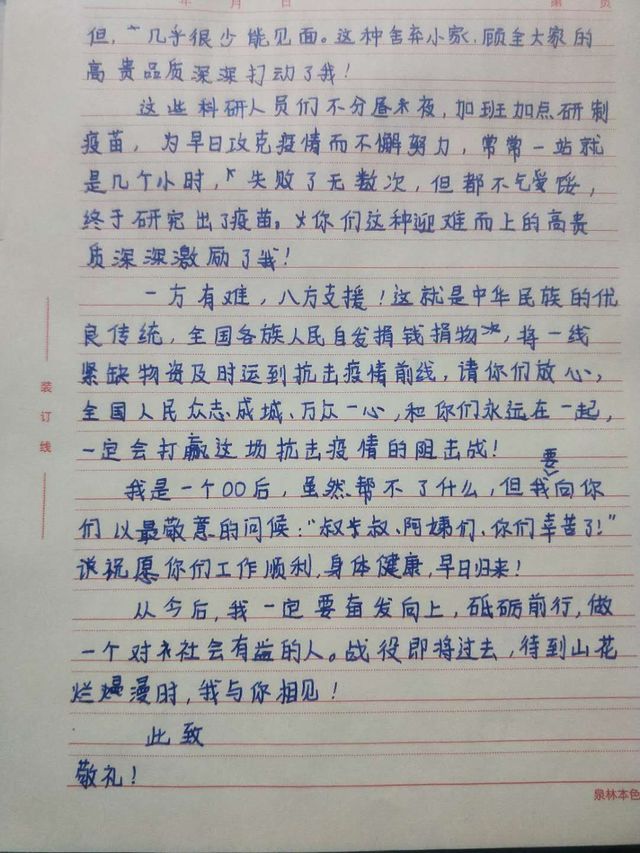 年 月 日 第 页
但，几乎很少能见面。这种舍弃小家、顾全大家的
高贵品质深深打动了我！
这些科研人员们不分昼夜，加班加点研制
疫苗，为早日攻克疫情而不懈努力，常常一站就
是几个小时，失败了无数次，但都不气馁，
终于研究出了疫苗。你们这种迎难而上的高贵
质深深激励了我！
一方有难，八方支援！这就是中华民族的优
良传统，全国各族人民自发捐钱捐物，将一线
紧缺物资及时运到抗击疫情前线，请你们放心，
全国人民众志成城、万众一心，和你们永远在一起，
一定会打赢这场抗击疫情的阻击战！
我是一个00后，虽然帮不了什么，但我要向你
们以最敬意的问候：“叔叔、阿姨们、你们辛苦了！”
祝愿你们工作顺利，身体健康，早日归来！
从今后，我一定要奋发向上，砥砺前行，做
一个对社会有益的人。战役即将过去，待到山花
烂漫时，我与你相见！
此致
敬礼！
装订线
泉林本色